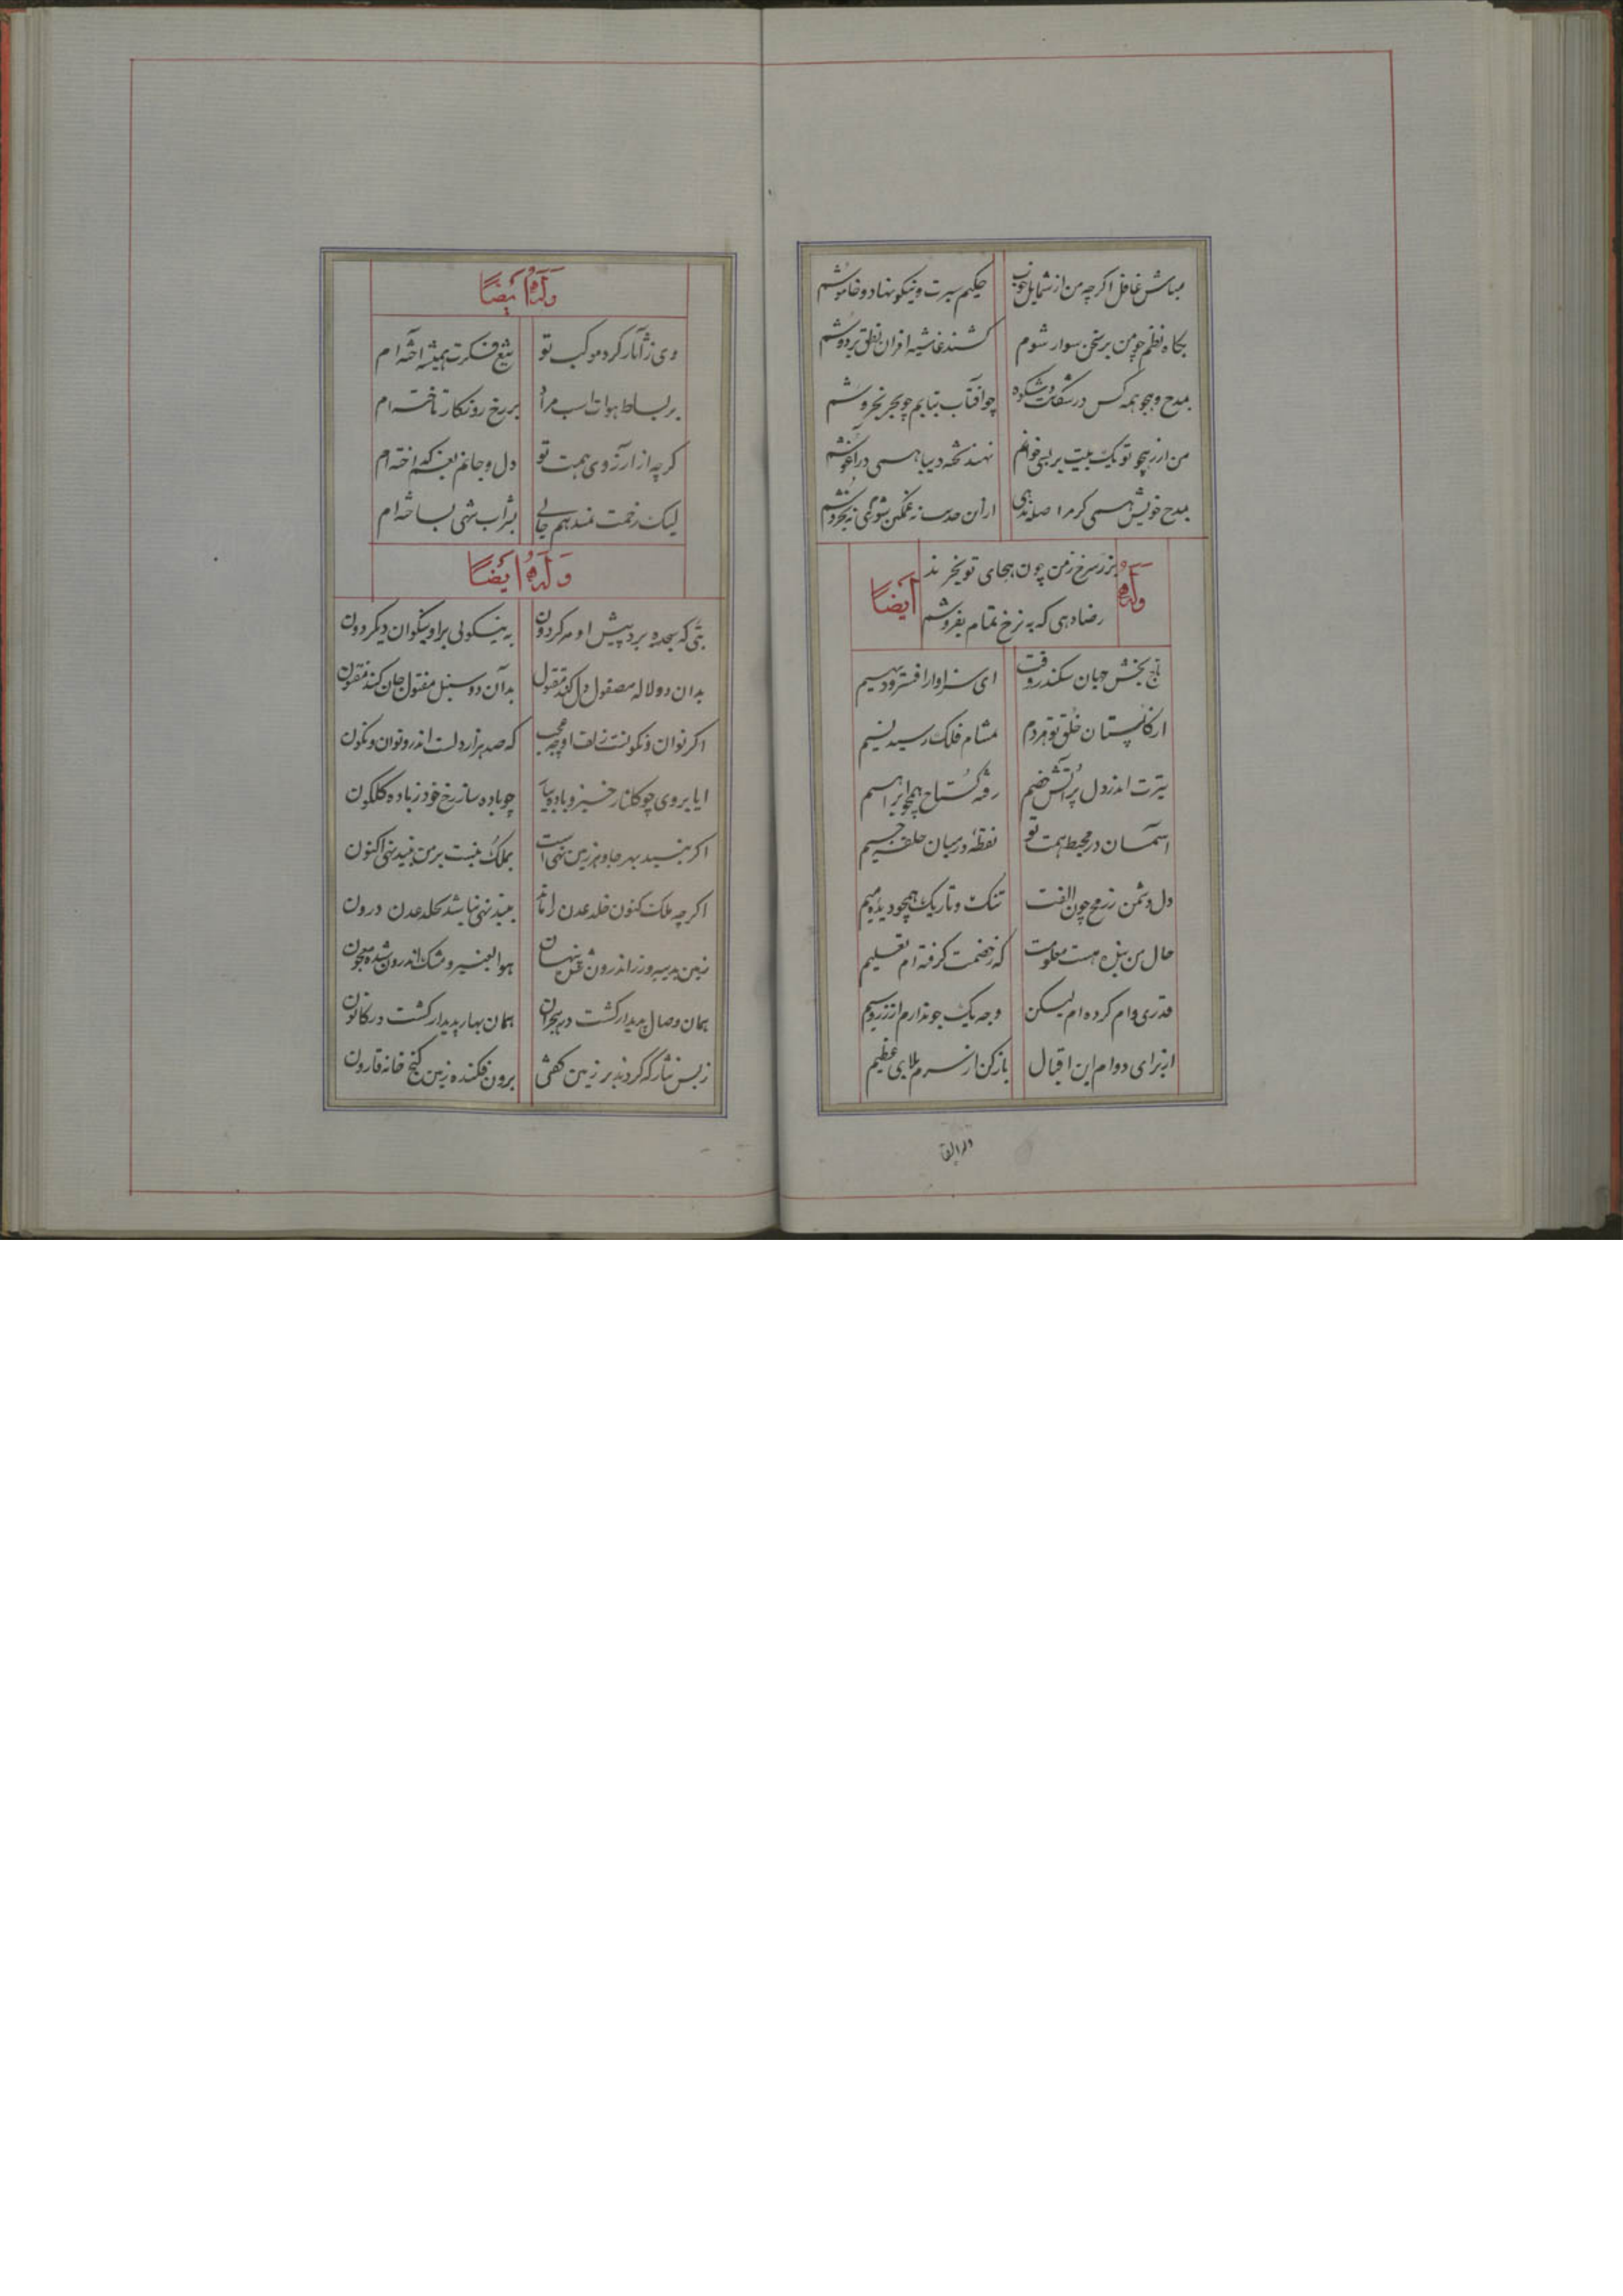 مباش غافل اکرچه من از شمایل خوب
حکیم سیرت و نیکو نهاد و خاموشم
بکاه نظم چو من بر سخن سوار شوم
کشند غاشیه اقران نطق بر دوشم
بمدح و هجو همه کس در شکایت و شکوه
چو آفتاب بتابم چو بحر بخروشم
من ار ز هجو تو یک بیت بر بسی خوانم
نهند تخته دیبا همی در آغوشم
بمدح خویش همی کر مرا صله ندهی
ازان حدیث نه غمکین شوی نه
وله
بزر سرخ ز من چون هجای تو بخرند
ایضاً
رضا دهی که به نرخ تمام بفروشم
تاج بخش جهان سکندر وقت
ای سزاوار افسر و دیهیم
از کلستان خلق تو هر دم
مشام فلک رسید نسیم
تیرت اندر دل پر آتش خصم
رفته کستاخ همچو ابراهیم
آسمان در محیط همت تو
نقطهٔ در میان حلقه جیم
دل دشمن ز رمح چون الفت
تنک و تاریک همچو دیده میم
حال من بنده هست معلومت
که ز خصمت کرفته ام تعلیم
قدری وام کرده ام لیکن
وجه یک جو ندارم از زر و سیم
از برای دوام این اقبال
باز کن از سرم بلای عظیم
وله ایضا
وله ایضاً
وی ز آثار کرد موکب تو
تیغ فکرت همیشه آخته ام
بر بساط هوات اسب مراد
بر رخ روزکار تاخته ام
کرچه از آرزوی همت تو
دل و جانم بغم کداخته ام
لیک زحمت نمیدهم جائی
بشراب شهی بساخته ام
وله ایضاً
بتی که سجده برد پیش او مه کردون
به نیکوئی بر او نیکوان دیکر دون
بدان دو لاله مصقول دل کند مقتول
بدان دو سنبل مفتول جان کند مفتون
اکر نوان و نکونست زلف او چه عجب
که صد هزار دلست اندرو نوان و نکون
ایا بروی چو کلنار خیز و باده بیار
چو باده ساز رخ خود ز باده کلکون
بملک نیست برین بنید تهی اکنون
اکرچه ملک کنون خلد عدن را ماند
نباشد بخلد عدن درون
درون شده پنهان
هوا بعنبر و مشک اندرون شده معجون
همان وصال پدیدار کشت در هجران
همان بهار پدیدار کشت در کانون
ز بس نثار که کردند بر زمین کفتی
برون فکنده زمین کنج خانه قارون